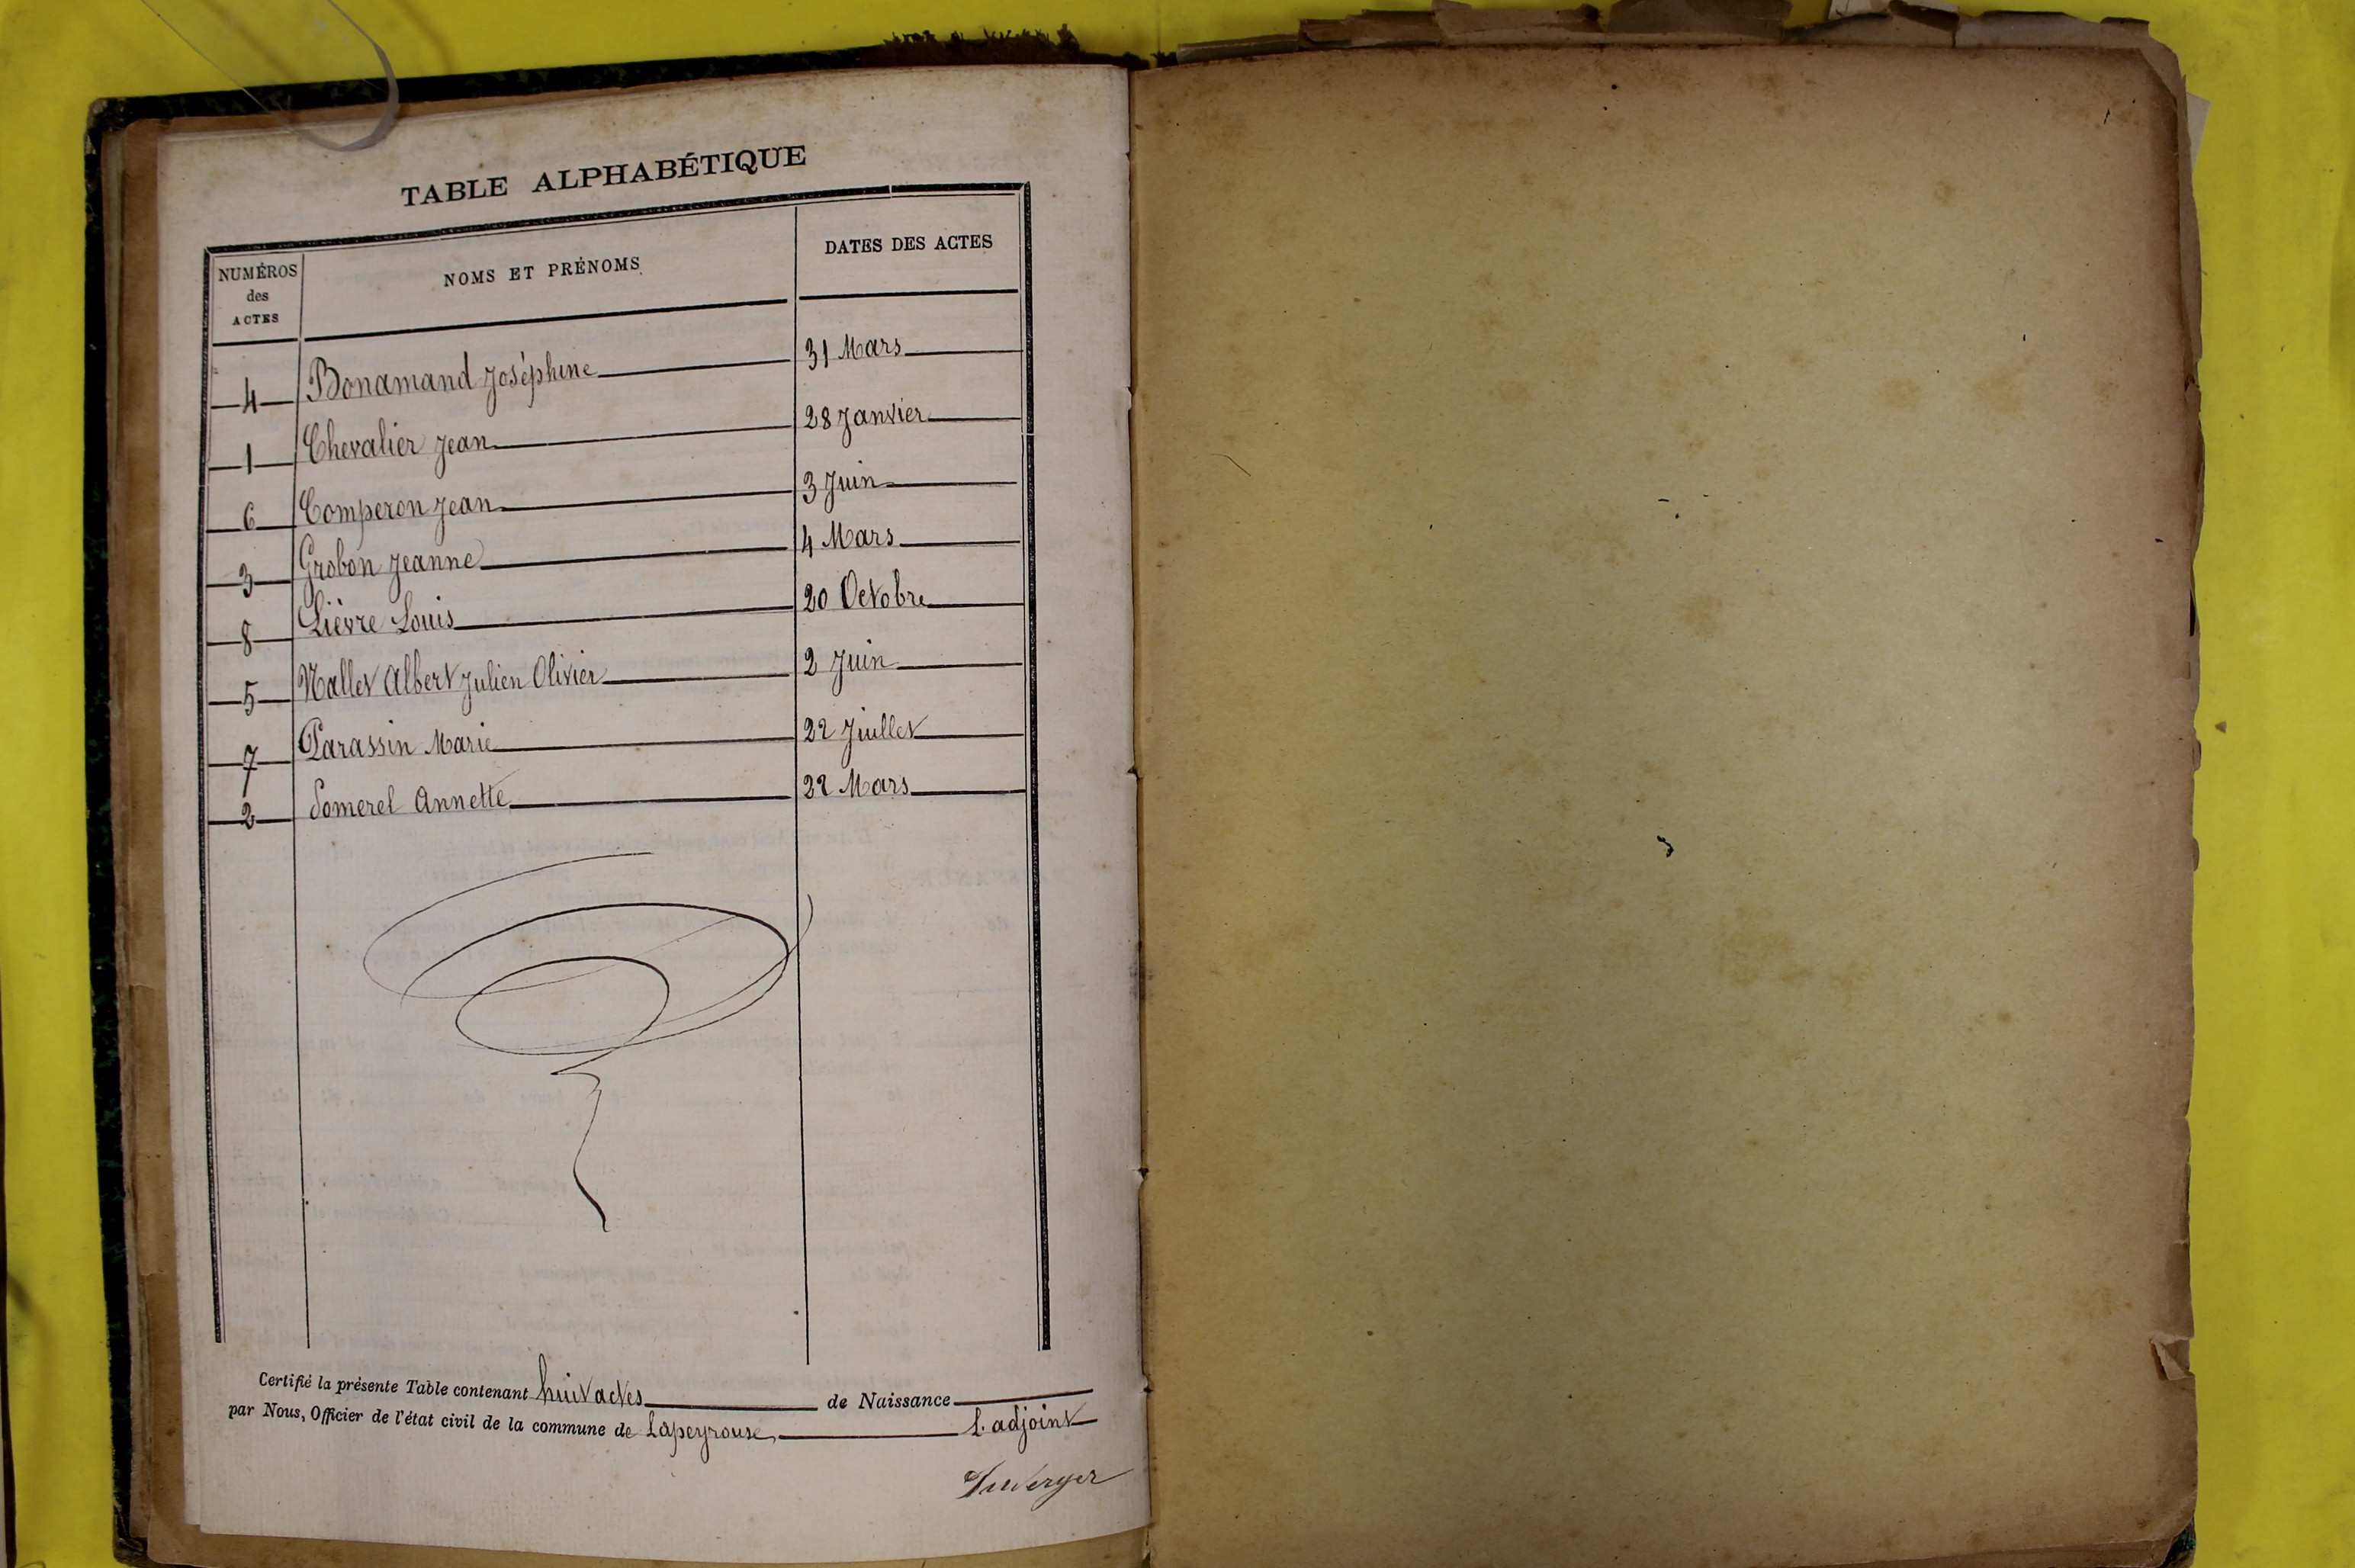 TABLE ALPHABÉTIQUE
NUMÉROS des ACTES NOMS ET PRÉNOMS DATES DES ACTES
4 Bonamand Joséphine 31 Mars
1 Chevalier Jean 28 Janvier
6 Comperon Jean 3 Juin
3 Grobon Jeanne 4 Mars
8 Lièvre Louis 20 Octobre
5 Nallet Albert Julien Olivier 2 Juin
7 Parassin Marie 22 Juillet
2 Somerel Annette 22 Mars
Certifié la présente Table contenant huit actes de Naissance
par Nous, Officier de l'état civil de la commune de Lapeyrouse, L'adjoint